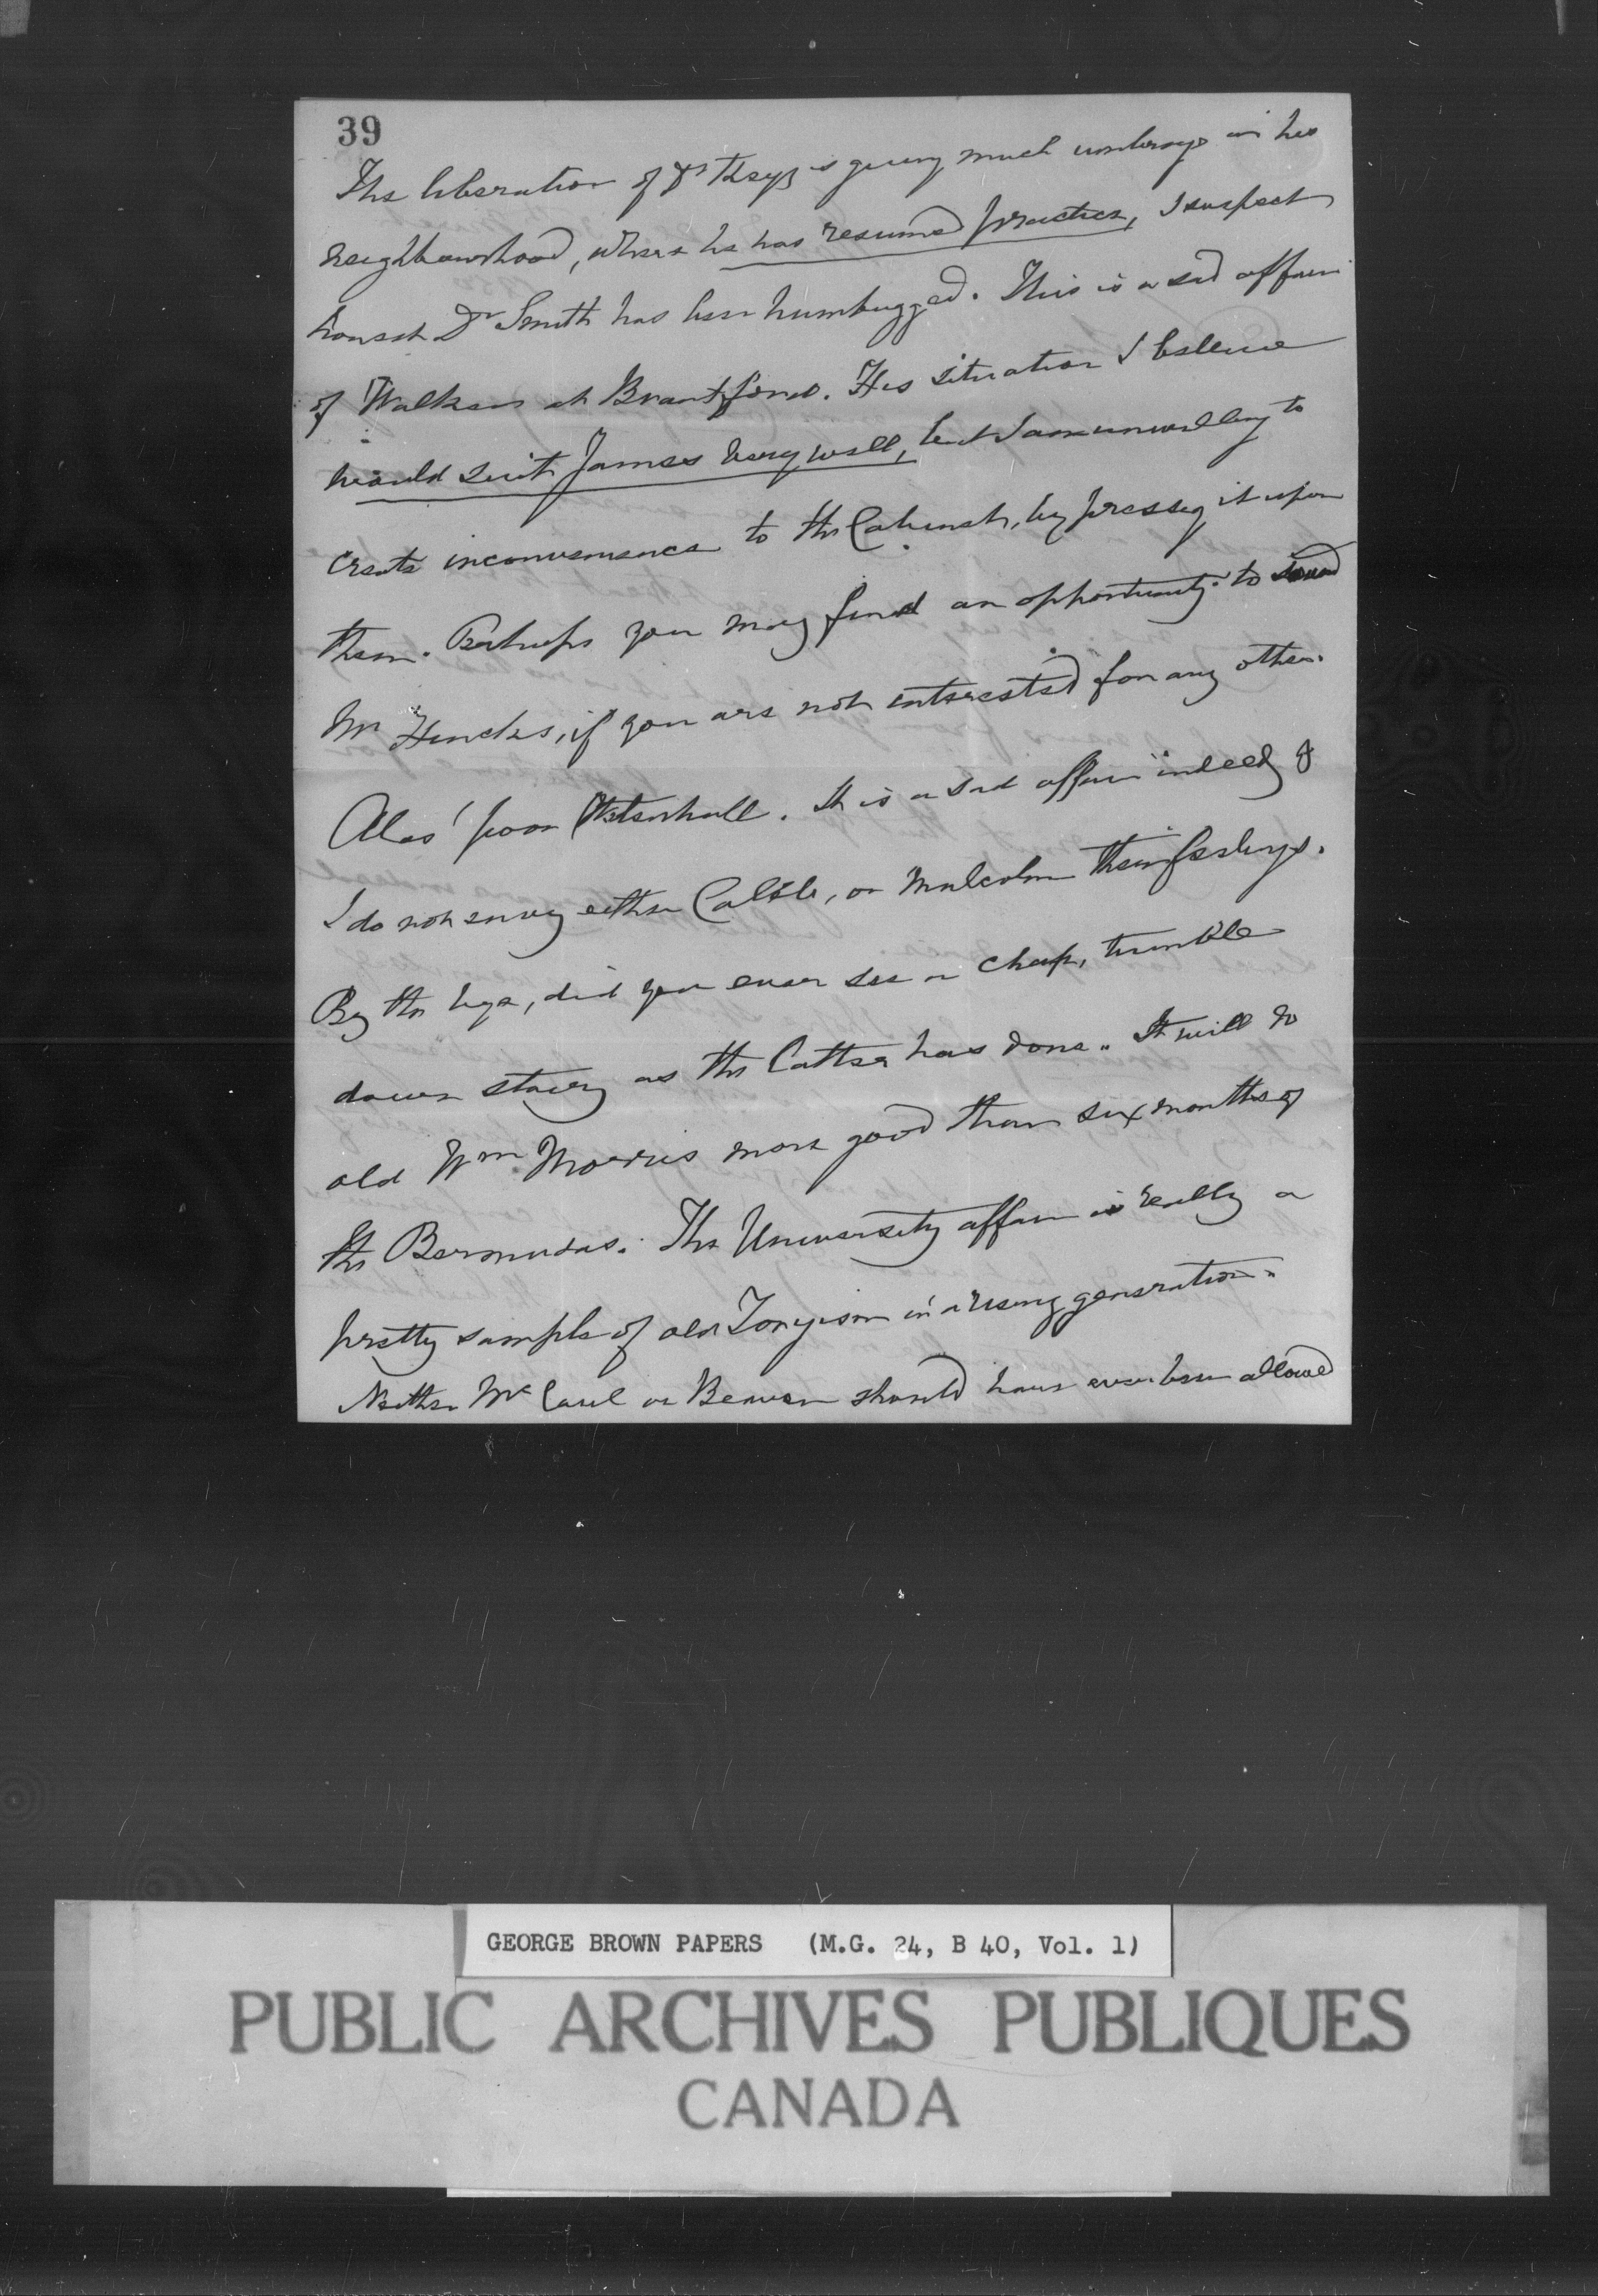 39
The liberation of Dr is giving much umbrage in his
neighbourhood, where he has resumed practice, I suspect
honest Dr Smith has been humbugged. This is a sad affair
of Walkers at Brantford. His situation I believe
would suit James very well, but I am unwilling to
create inconvenience to the Cabinet, by pressg it upon
them. Perhaps you may find an opportunity to sound
Mr Hincks, if you are not interested for any other.
Alas! poor Wetenhall. It is a sad affair indeed &
I do not envy either, or Malcolm their feelings.
By the bye, did you ever see a chap, tumble
down stairs as the latter has done. It will do
old Wm. Morris more good than six months of
the Bermudas. The University affair is really a
pretty sample of old Toryism in a rising generation.
Neither McCaul or Beaven should have ever been allowed
GEORGE BROWN PAPERS (M.G. 24, B 40, Vol. 1)
PUBLIC ARCHIVES PUBLIQUES
CANADA